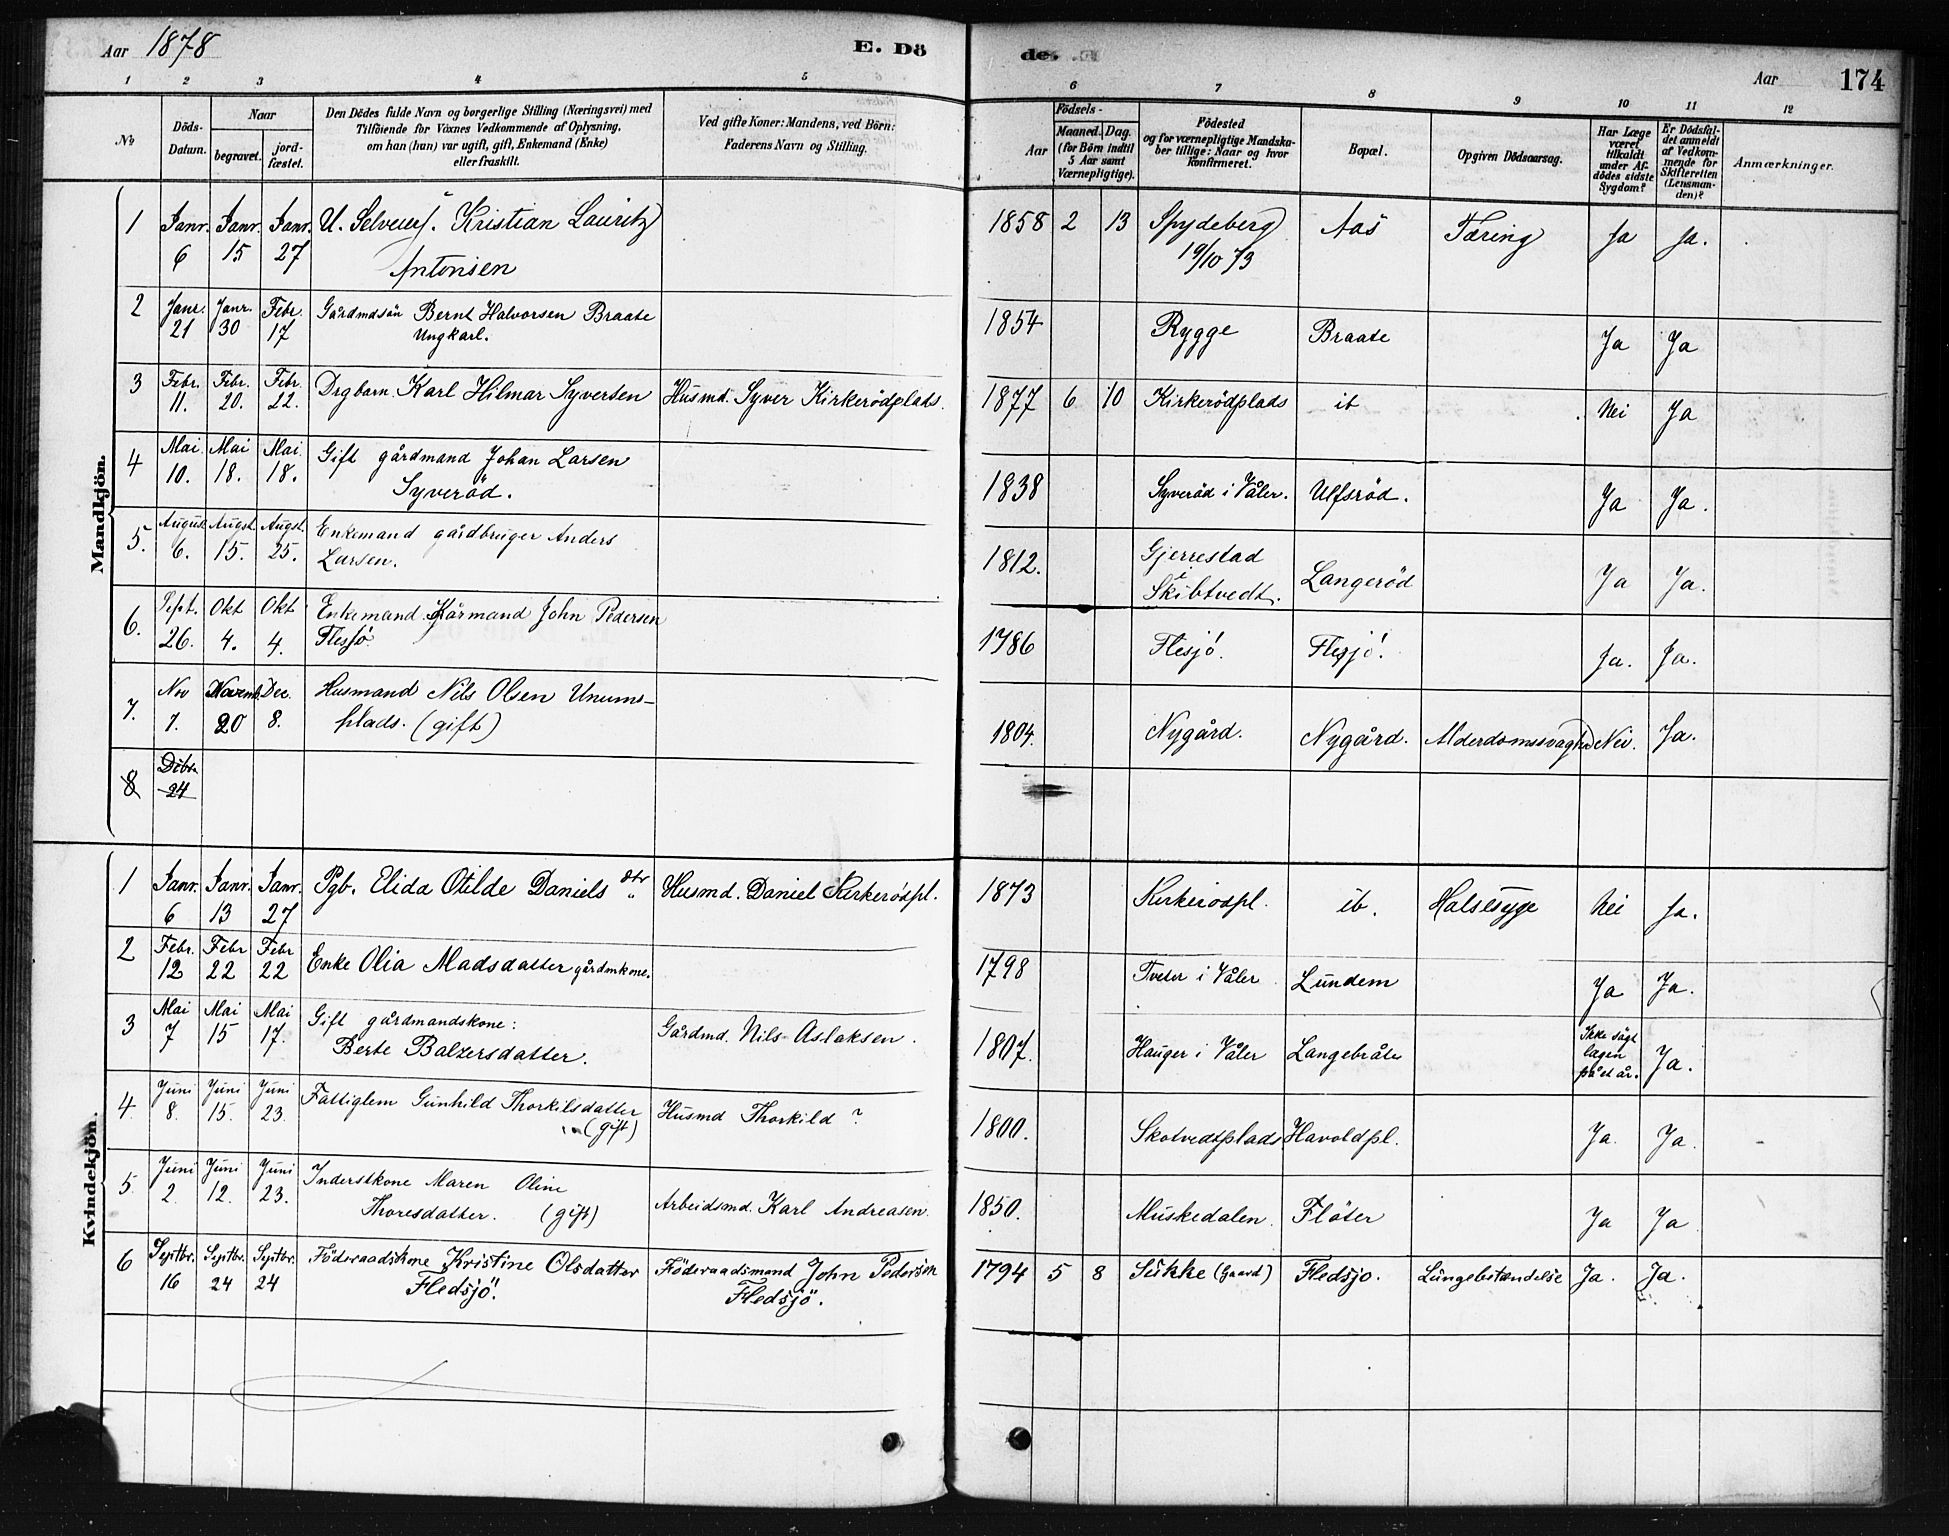 Aar 1878 E. Dö de. Aar 174
1 2 3 4 5 6 7 8 9 10 11 12
No Döds-Datum. Naar begravet. jordfæstet. Den Dödes fulde Navn og borgerlige Stilling (Næringsvei) med Tilföiende for Voxnes Vedkommende af Oplysning, om han (hun) var ugift, gift, Enkemand (Enke) eller fraskilt. Ved gifte Koner: Mandens, ved Börn: Faderens Navn og Stilling. Födsels- Aar Maaned. Dag. (for Börn indtil 5 Aar samt Værnepligtige). Födested og for værnepligtige Mandskaber tillige: Naar og hvor konfirmeret. Bopæl. Opgiven Dödsaarsag. Har Læge været tilkaldt under Afdödes sidste Sygdom? Er Dödsfaldet anmeldt af Vedkommende for Skifteretten (Lensmanden)? Anmærkninger.
Mandkjön.
1 Janr. 6 Janr. 15 Janr. 27 U. Selveierf. Kristian Lauritz Antonsen 1858 2 13 Spydeberg 19/10 73 Aas Tæring Ja Ja.
2 Janr. 21 Janr. 30 Febr. 17 Gårdmdsön Bernt Halvorsen Braate Ungkarl. 1854 Rygge Braate Ja Ja
3 Febr. 11. Febr. 20. Febr. 22. Drgbarn Karl Hilmar Syversen Husmd. Syver Kirkerödplads. 1877 6 10 Kirkerödplads ib Nei Ja
4 Mai 10. Mai 18. Mai 18. Gift gårdmand Johan Larsen Syveröd. 1838 Syveröd i Våler. Ulfsröd. Ja Ja.
5. August 6. Augst. 15. Augst. 25. Enkemand gårdbruger Anders Larsen. 1812. Gjerrestad i Skibtvedt. Langeröd Ja Ja.
6. Sept. 26. Okt 4. Okt 4. Enkemand Kårmand John Pedersen Flesjö. 1786 Flesjö. Flesjö. Ja. Ja.
7. Nov 7. Novemb. 20 Dec. 8. Husmand Nils Olsen Unums-plads. (gift) 1804. Nygård. Nygård. Alderdomssvaghed Nei. Ja.
8 Decbr 24
Kvindekjön.
1 Janr. 6 Janr. 13 Janr. 27 Pgb. Elida Otilde Daniels dtr Husmd. Daniel Kirkerödpl. 1873 Kirkerödpl. ib. Halssyge Nei Ja.
2 Febr. 12 Febr 22 Febr 22 Enke Olia Madsdatter gårdmkone. 1798 Tveter i Våler Lundem Ja Ja.
3 Mai 7 Mai 15 Mai 17. Gift gårdmandskone: Berte Balzersdatter. Gårdmd. Nils Aslaksen. 1807. Hauger i Våler Langebråte Ikke sögt lægen på et år. Ja.
4. Juni 8. Juni 15. Juni 23. Fattiglem Gunhild Thorkilsdatter (gift) Husmd Thorkild ? 1800. Skotvedtplads Havoldpl. Ja. Ja.
5. Juni 2. Juni 12. Juni 23. Inderstkone Maren Oline Thoresdatter. (gift) Arbeidsmd. Karl Andreasen. 1850. Muskedalen. Flöter Ja Ja
6 Septbr. 16 Septbr. 24 Septbr. 24 Föderaadskone Kristine Olsdatter Fledsjö. Föderaadsmand John Pedersen Fledsjö. 1794 5 8 Sukke (Gaard) Fledsjo. Lungebetændelse Ja. Ja.